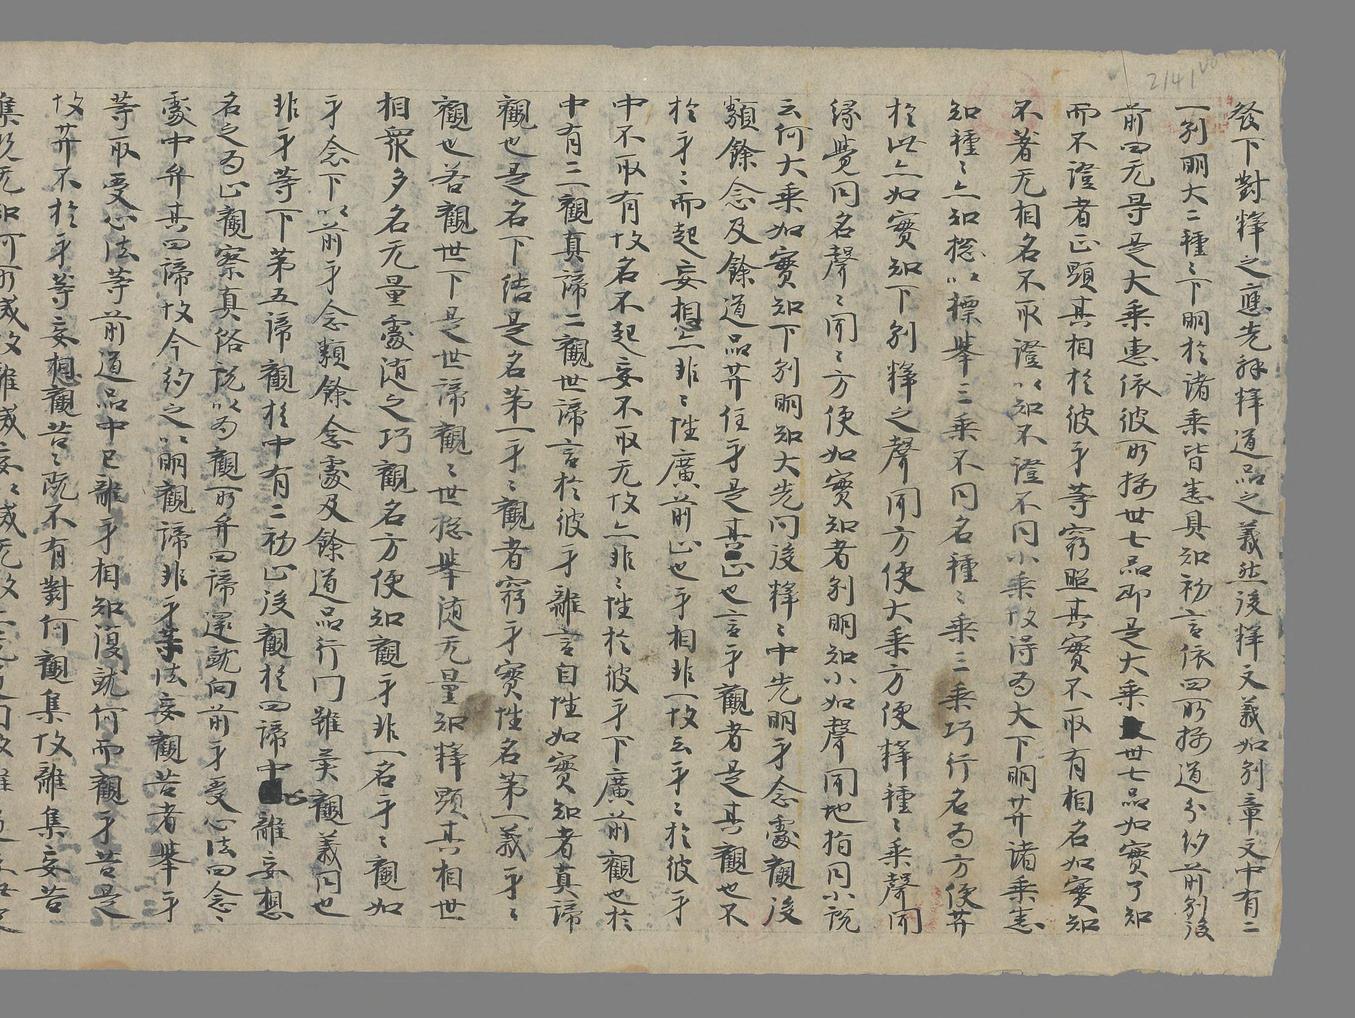 發下對釋之應先解釋道品之義然後釋文義如別章文中有二
一別明大二種〻下明於諸乘皆悉具知初言依四所攝道分約前別後
前四无㝵是大乘惠依彼所攝卅七品即是大乘卅七品如實了知
而不證者正顯其相於彼身等窮照其實不取有相名如實知
不著无相名不取證以知不證不同小乘故得为大下明菩諸乘悉
知種〻亦知捴以摽舉三乘不同名種〻乘三乘巧行名为方便菩
於此亦如實知下別釋之聲聞方便大乘方便釋種〻乘聲聞
緣覺同名聲〻聞〻方便如實知者別明知小如聲聞地指同小說
云何大乘如實知下別明知大先問後釋〻中先明身念處觀後
類餘念及餘道品菩住身是其正也言身觀者是其觀也不
於身〻而起妄相亦非〻性廣前正也身相非一故云身〻於彼身
中不取有故名不起妄不取无故亦非〻性於彼身下廣前觀也於
中有二一觀真諦二觀世諦言於彼身離言自性如實知者真諦
觀也是名下結是名第一身〻觀者窮身實性名第一義身〻
觀也若觀世下是世諦觀〻世捴舉随无量知釋顯其相世
相衆多名无量處随之巧觀名方便知觀身非一名身〻觀如
身念下以前身念類餘念處及餘道品行門雖異觀義同也
非身等下第五諦觀於中有二初正後觀於四諦中離妄想
名之为正觀察真俗說以为觀所弁四諦還就向前身受心法四念〻
處中弁其四諦故今約之以明觀諦非身等法妄觀苦者舉身
等取受心法等前道品中已離身相知復就何而觀身苦是
故菩不於身等妄想觀苦〻既不有對何觀集故離集妄苦